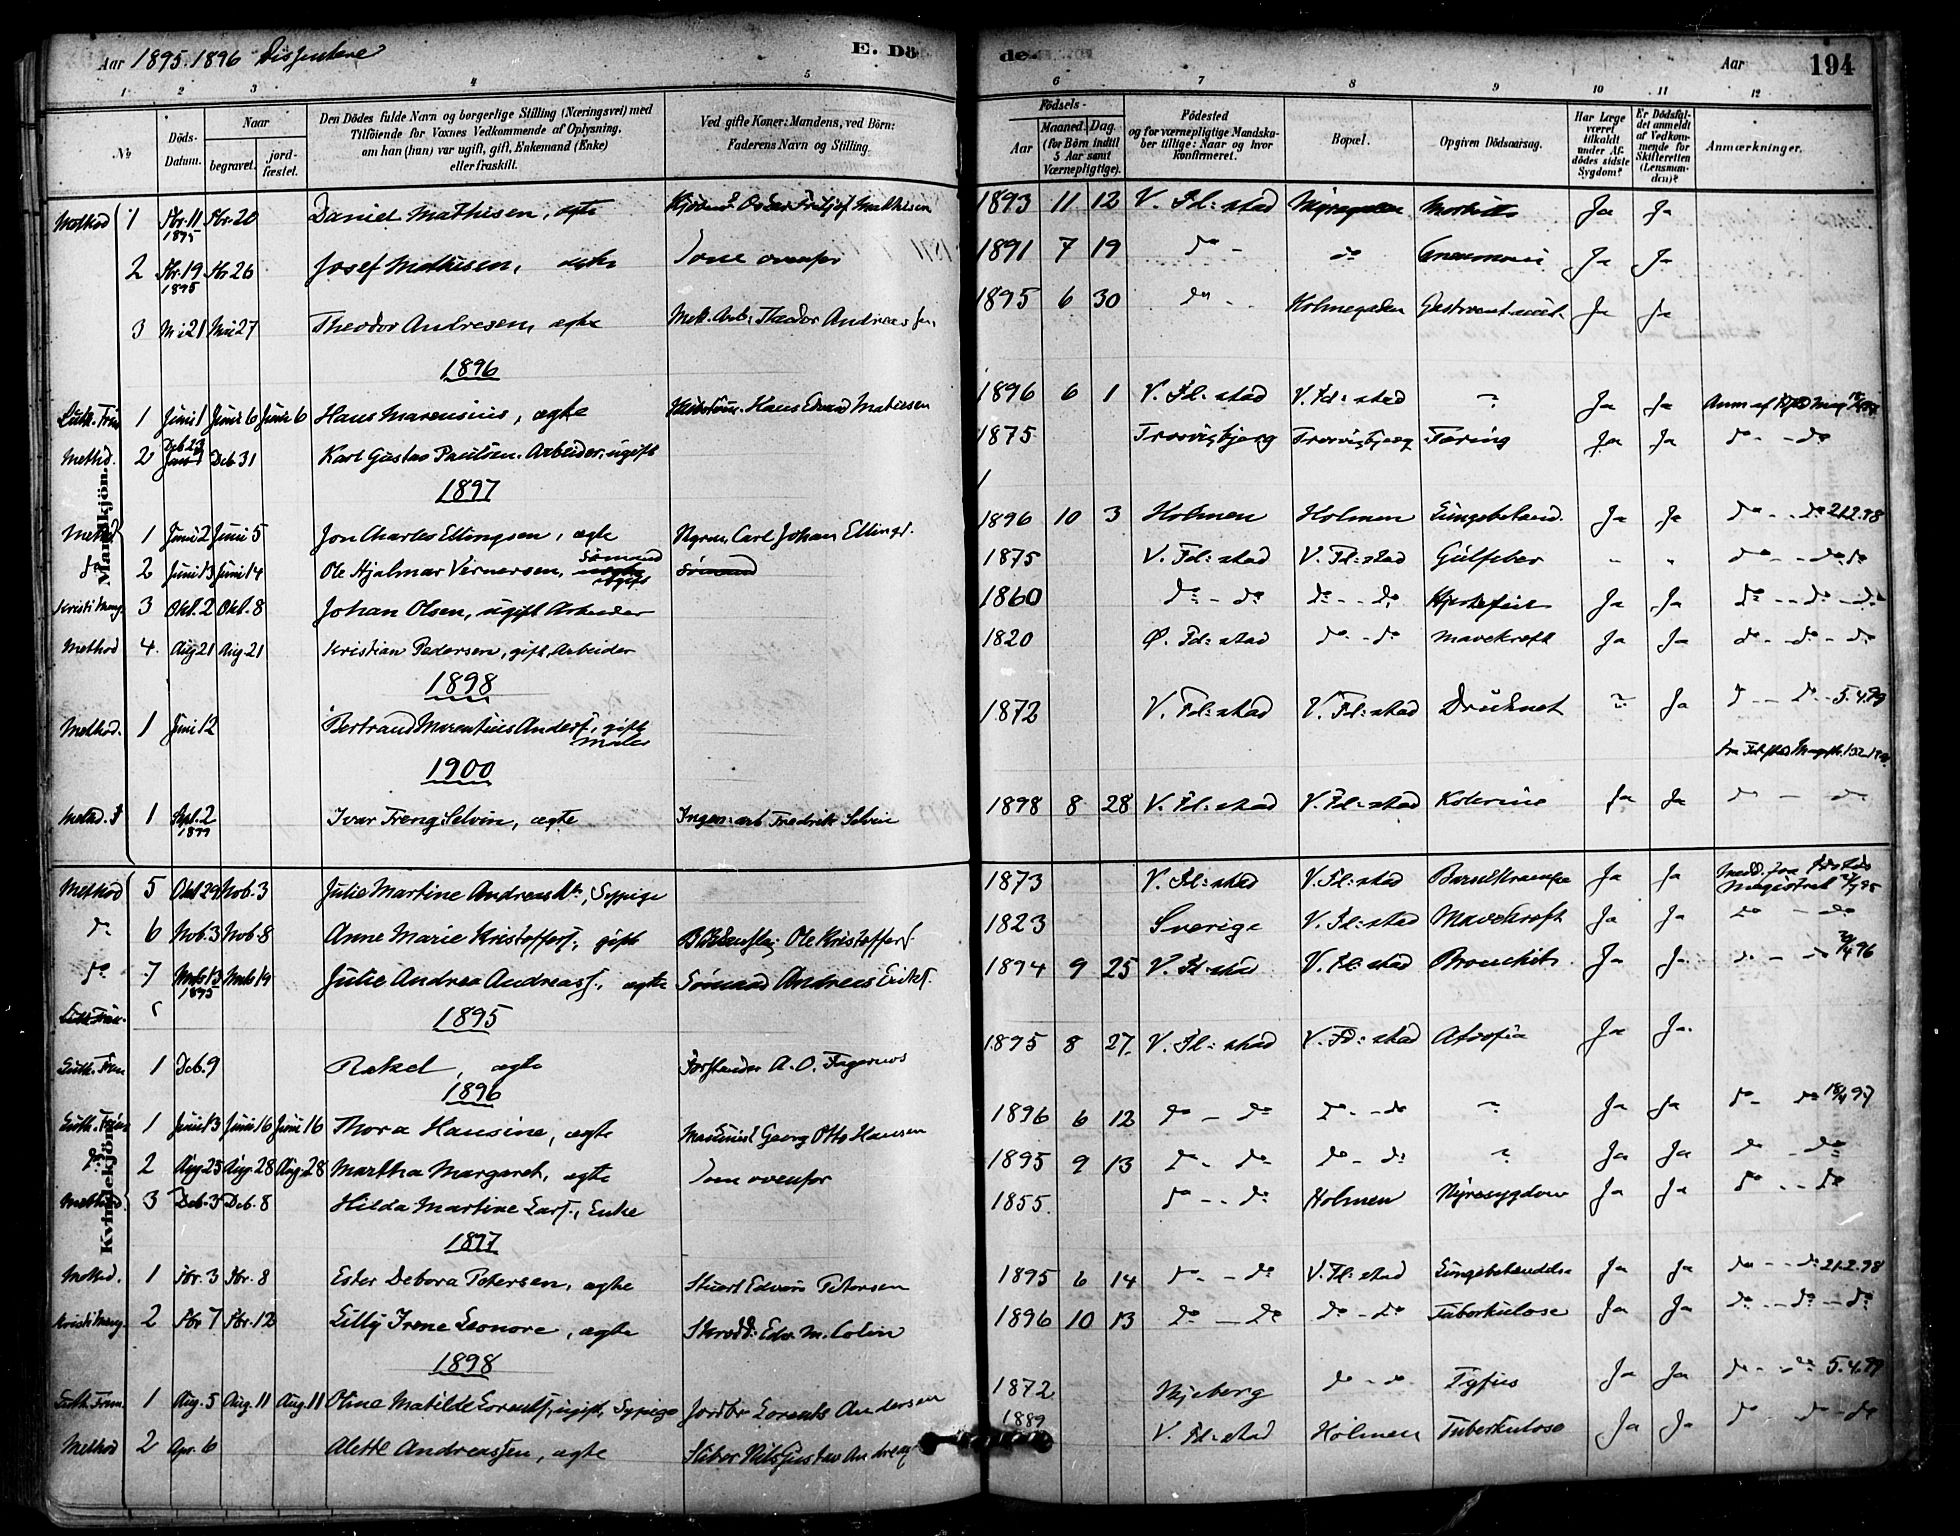 Aar 1895-1896 Dissentere
E. Dö
de.
Aar
194
1 2 3 4 5 6 7 8 9 10 11 12
No
Döds-Datum.
Naar
begravet.
jordfæstet.
Den Dödes fulde Navn og borgerlige Stilling (Næringsvei) med
Tilföiende for Voxnes Vedkommende af Oplysning,
om han (hun) var ugift, gift, Enkemand (Enke)
eller fraskilt.
Ved gifte Koner: Mandens, ved Börn:
Faderens Navn og Stilling.
Födsels-
Aar
Maaned. Dag.
(for Börn indtil
5 Aar samt
Værnepligtige).
Födested
og for værnepligtige Mandska-
ber tillige: Naar og hvor
Konfirmeret.
Bopæl.
Opgiven Dödsaarsag.
Har Læge
været
tilkaldt
under Af-
dödes sidste
Sygdom?
Er Dödsfal-
det anmeldt
af Vedkom-
mende for
Skifteretten
(Lensman-
den)?
Anmærkninger.
Mandkjön.
Method 1 Fbr. 11 1895 Fbr. 20 Daniel Mathisen, ægte Mathisen 1893 11 12 V. Fd: stad Ja Ja
2 Fbr. 19 1895 Fbr 26 Josef Mathisen, ægte Som ovenfor 1891 7 19 do - do Ja Ja
3 Mai 21 Mai 27 Theodor Andresen, ægte Mek. Arb. Theodor Andreassen 1895 6 30 do - Holmegaden Ja Ja
1896
Luth. Frim 1 Juni 1 Juni 6 Juni 6 Hans Marensius, ægte Hans Edvard Matisen 1896 6 1 V. Fd: stad V. Fd: stad ? Ja Ja
Method. 2 Deb 23 Deb. 31 Karl Gustav Paulsen. Arbeider, ugift 1875 Trosvigbjerg Trosvigbjerg Tæring Ja Ja do - do
1897
Method 1 Juni 2 Juni 5 Jon Charles Ellingsen, ægte Carl Johan Ellings. 1896 10 3 Holmen Holmen Lungebetænd. Ja Ja do - - do 21.2.98
do 2 Juni 13 Juni 14 Ole Hjalmar Vernersen, Sömand ugift Sömand 1875 V. Fd: stad V. Fd: stad Gulfeber " " do - - do. do
Kristi Meng. 3 Okt. 2 Okt. 8 Johan Olsen, ugift Arbeider 1860 do - do do - - do Hjertefeil Ja Ja do - - do - do
Method 4. Aug 21 Aug. 21 Kristian Pedersen, gift, Arbeider 1820 Ø. Fd: stad do - do Mavekræft Ja Ja do - do - do
1898
Method. 1 Juni 12 Bertrand Marentius Anders., gift Maler 1872 V. Fd: stad V. Fd: stad Druknet ? Ja do - - do - 5.4.99
1900
Method. 1 Sept. 2 1899 Ivar Freng Selvin, ægte Fredrik Selvin 1898 8 28 V. Fd: stad V. Fd: stad Kolerine Ja Ja do - do
Kvindekjön.
Method 5 Okt 29 Nob. 3 Julie Martine Andreasdt., Sypige 1873 V. Fd: stad V. Fd: stad Barselkrampe Ja Ja Medd. fra Magistrat
do 6 Nob. 3 Nob. 8 Anne Marie Kristoffers., gift Ole Kristoffers. 1823 Sverige V. Fd: stad Mavekræft Ja Ja do - do
do 7 1895 Julie Andrea Andreass., ægte Sömand Andreas Eriks. 1894 9 25 V. Fd: stad V. Fd: stad Bronchit Ja Ja do - do
Luth. Frim.
1895
Luth. Frim 1 Deb. 9 Rakel, ægte Forstander A. O. Fagernos 1895 8 27 V. Fd: stad V. Fd: stad Atrofia Ja Ja
1896
Luth. Frim 1 Juni 13 Juni 16 Juni 16 Thora Hansine, ægte Maskinist Georg Otto Hansen 1896 6 12 do - do do - do ? Ja Ja do - do
do 2 Aug. 25 Aug. 28 Aug. 28 Martha Margaret, ægte Som ovenfor 1895 9 13 do - do do - do ? Ja Ja do - do
Method 3 Deb. 3 Deb. 8 Hilda Martine Lars., Enke 1855. do - - do Holmen Nyresygdom Ja Ja do - - do
1897
Method. 1 Fbr. 3 Fbr. 8 Ester Debora Petersen, ægte Stuert Edvard Petersen 1895 6 14 do - - do V. Fd: stad Lungebetændelse Ja Ja do - - do 21.2.98
Kristi Meng 2 Fbr 7 Fbr. 12 Lilly Irene Leonore, ægte Skrædd. Edv. M. Colin 1896 10 13 do - do do - do Tuberkulose Ja Ja do - - do - do
1898
Luth. Frim. 1 Aug. 5 Aug. 11 Aug. 11 Oline Matilde Lorents., ugift, Sypige Jordbr. Lorents Andersen 1872 Skjeberg do - do Tyfus Ja Ja do - - do 5.4.99
Method 2 Apr. 6 Alette Andreassen, ægte Nils Gustav Andreas. 1889 V. Fd: stad Holmen Tuberkulose Ja Ja do do - do